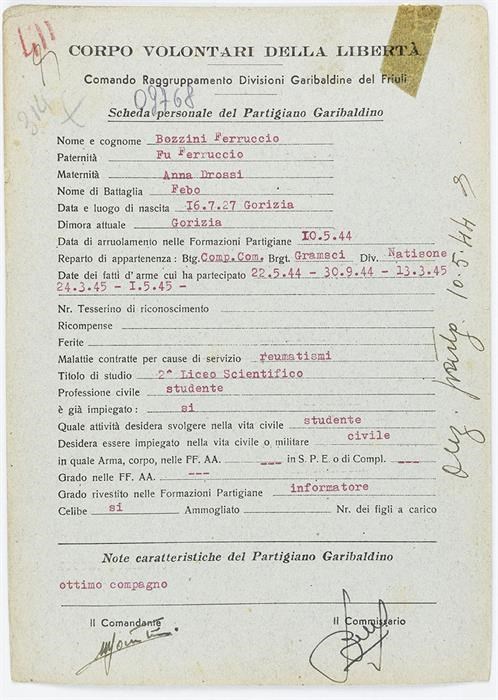 CORPO VOLONTARI DELLA LIBERTÀ
Comando Raggruppamento Divisioni Garibaldine del Friuli
09768
314
Scheda personale del Partigiano Garibaldino
Nome e cognome Bozzini Ferruccio
Paternità Fu Ferruccio
Maternità Anna Drossi
Nome di Battaglia Febo
Data e luogo di nascita 16.7.27 Gorizia
Dimora attuale Gorizia
Data di arruolamento nelle Formazioni Partigiane 10.5.44
Reparto di appartenenza : Btg. Comp.Com. Brgt. Gramsci Div. Natisone
Date dei fatti d'arme cui ha partecipato 22.5.44 - 30.9.44 - 13.3.45
24.3.45 - 1.5.45 -
Nr. Tesserino di riconoscimento
Ricompense
Ferite
Malattie contratte per cause di servizio reumatismi
Titolo di studio 2^ Liceo Scientifico
Professione civile studente
è già impiegato : si
Quale attività desidera svolgere nella vita civile studente
Desidera essere impiegato nella vita civile o militare civile
in quale Arma, corpo, nelle FF. AA. --- in S. P. E. o di Compl. ---
Grado nelle FF. AA. ---
Grado rivestito nelle Formazioni Partigiane informatore
Celibe si Ammogliato Nr. dei figli a carico
Note caratteristiche del Partigiano Garibaldino
ottimo compagno
Il Comandante Il Commissario
10.5.44